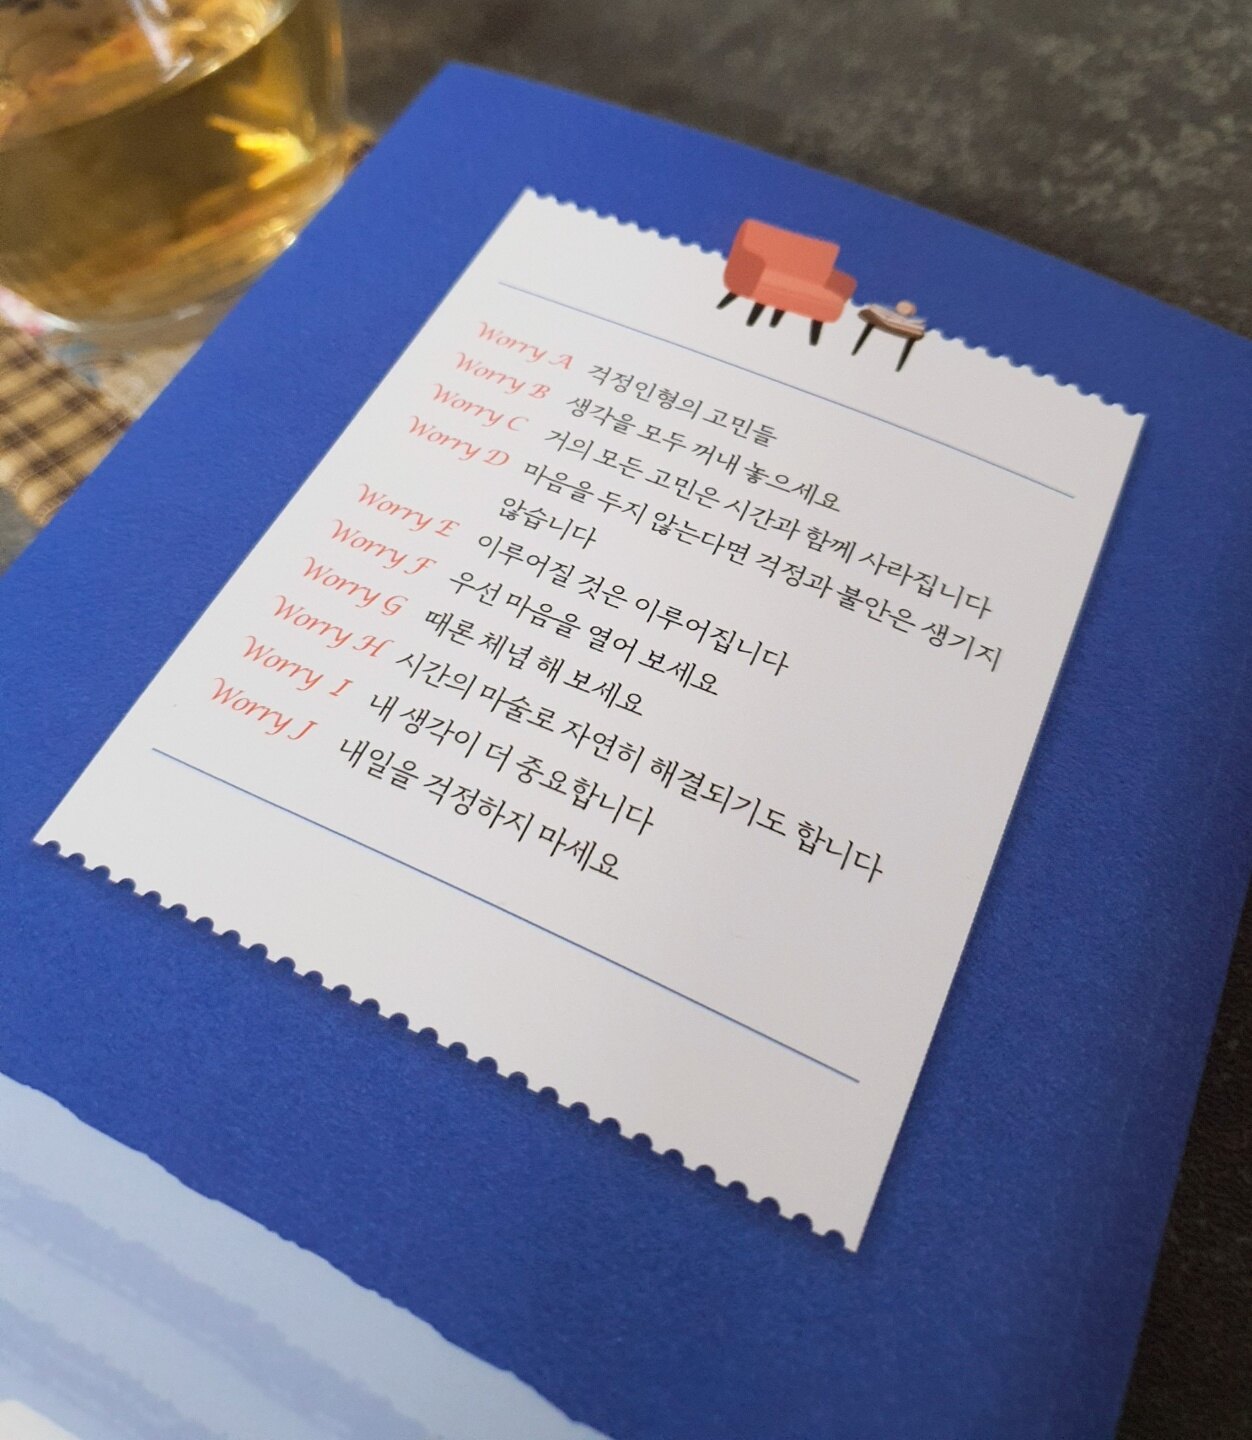 Worry A 걱정인형의 고민들
Worry B 생각을 모두 꺼내 놓으세요
Worry C 거의 모든 고민은 시간과 함께 사라집니다
Worry D 마음을 두지 않는다면 걱정과 불안은 생기지
않습니다
Worry E 이루어질 것은 이루어집니다
Worry F 우선 마음을 열어 보세요
Worry G 때론 체념 해 보세요
Worry H 시간의 마술로 자연히 해결되기도 합니다
Worry I 내 생각이 더 중요합니다
Worry J 내일을 걱정하지 마세요